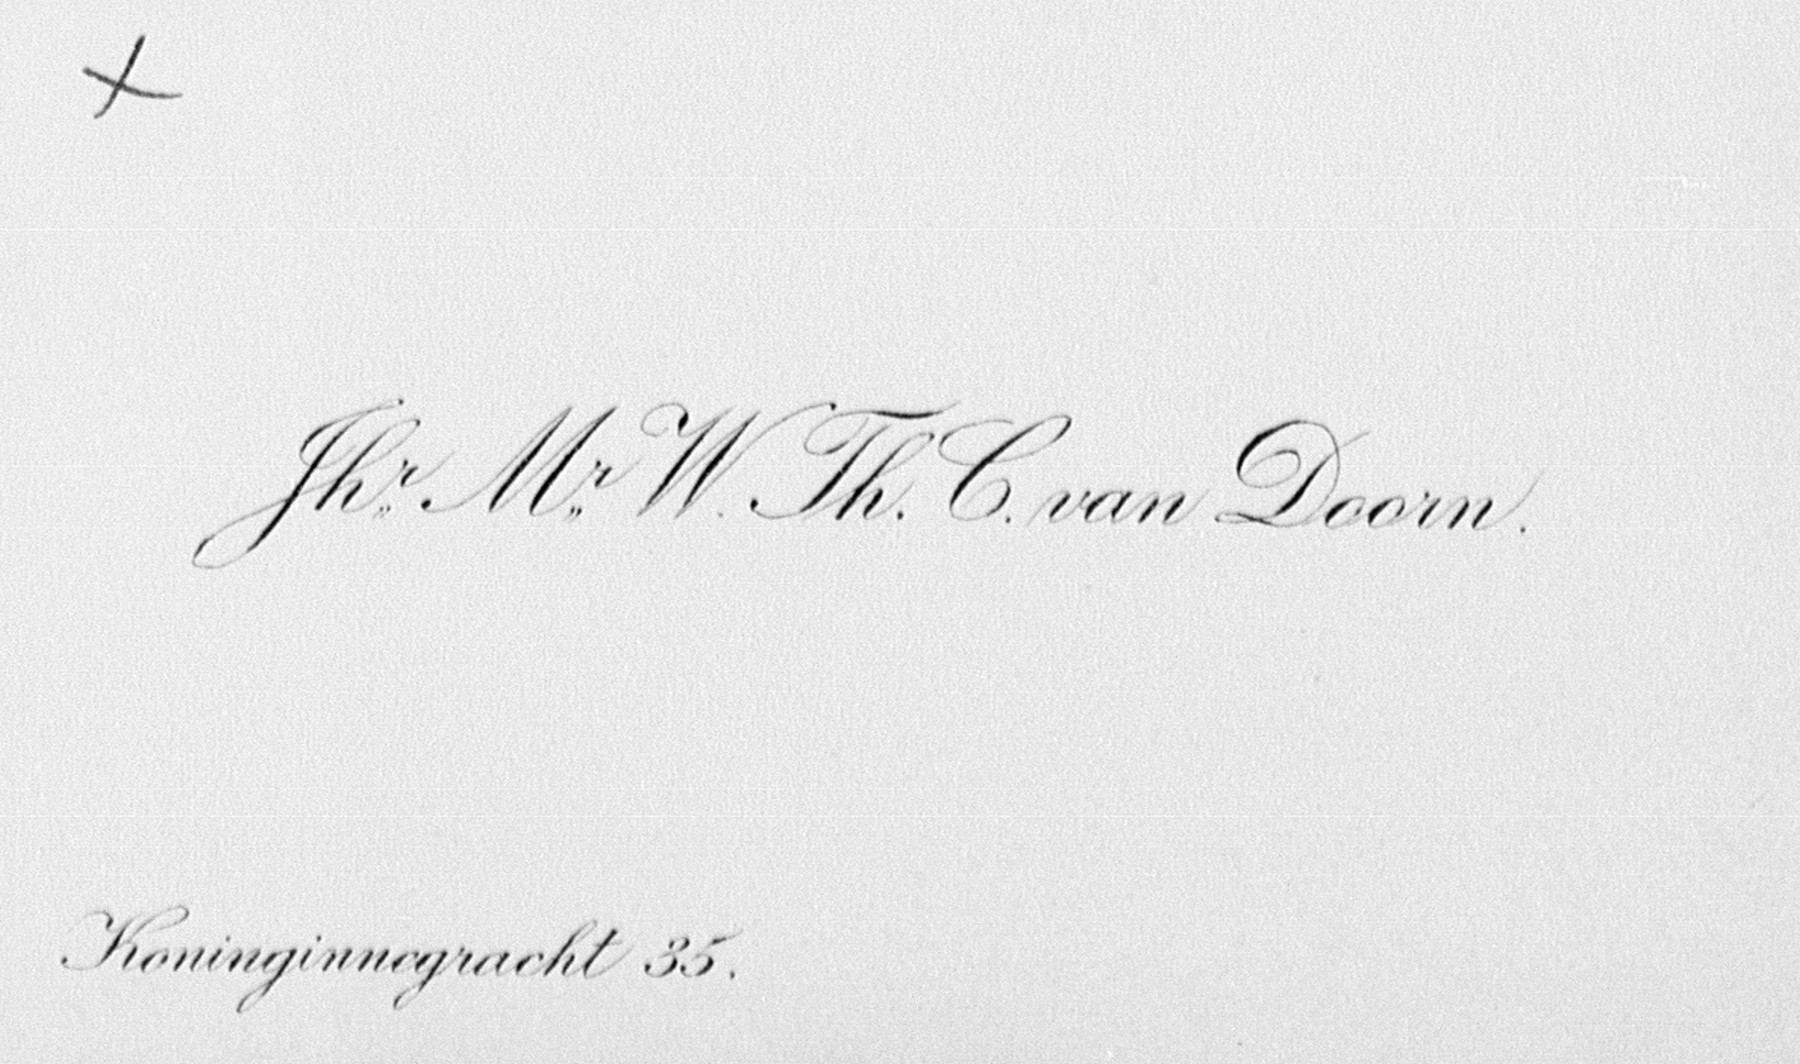 Jhr. Mr. W. Th. C. van Doorn.
Koninginnegracht 35.